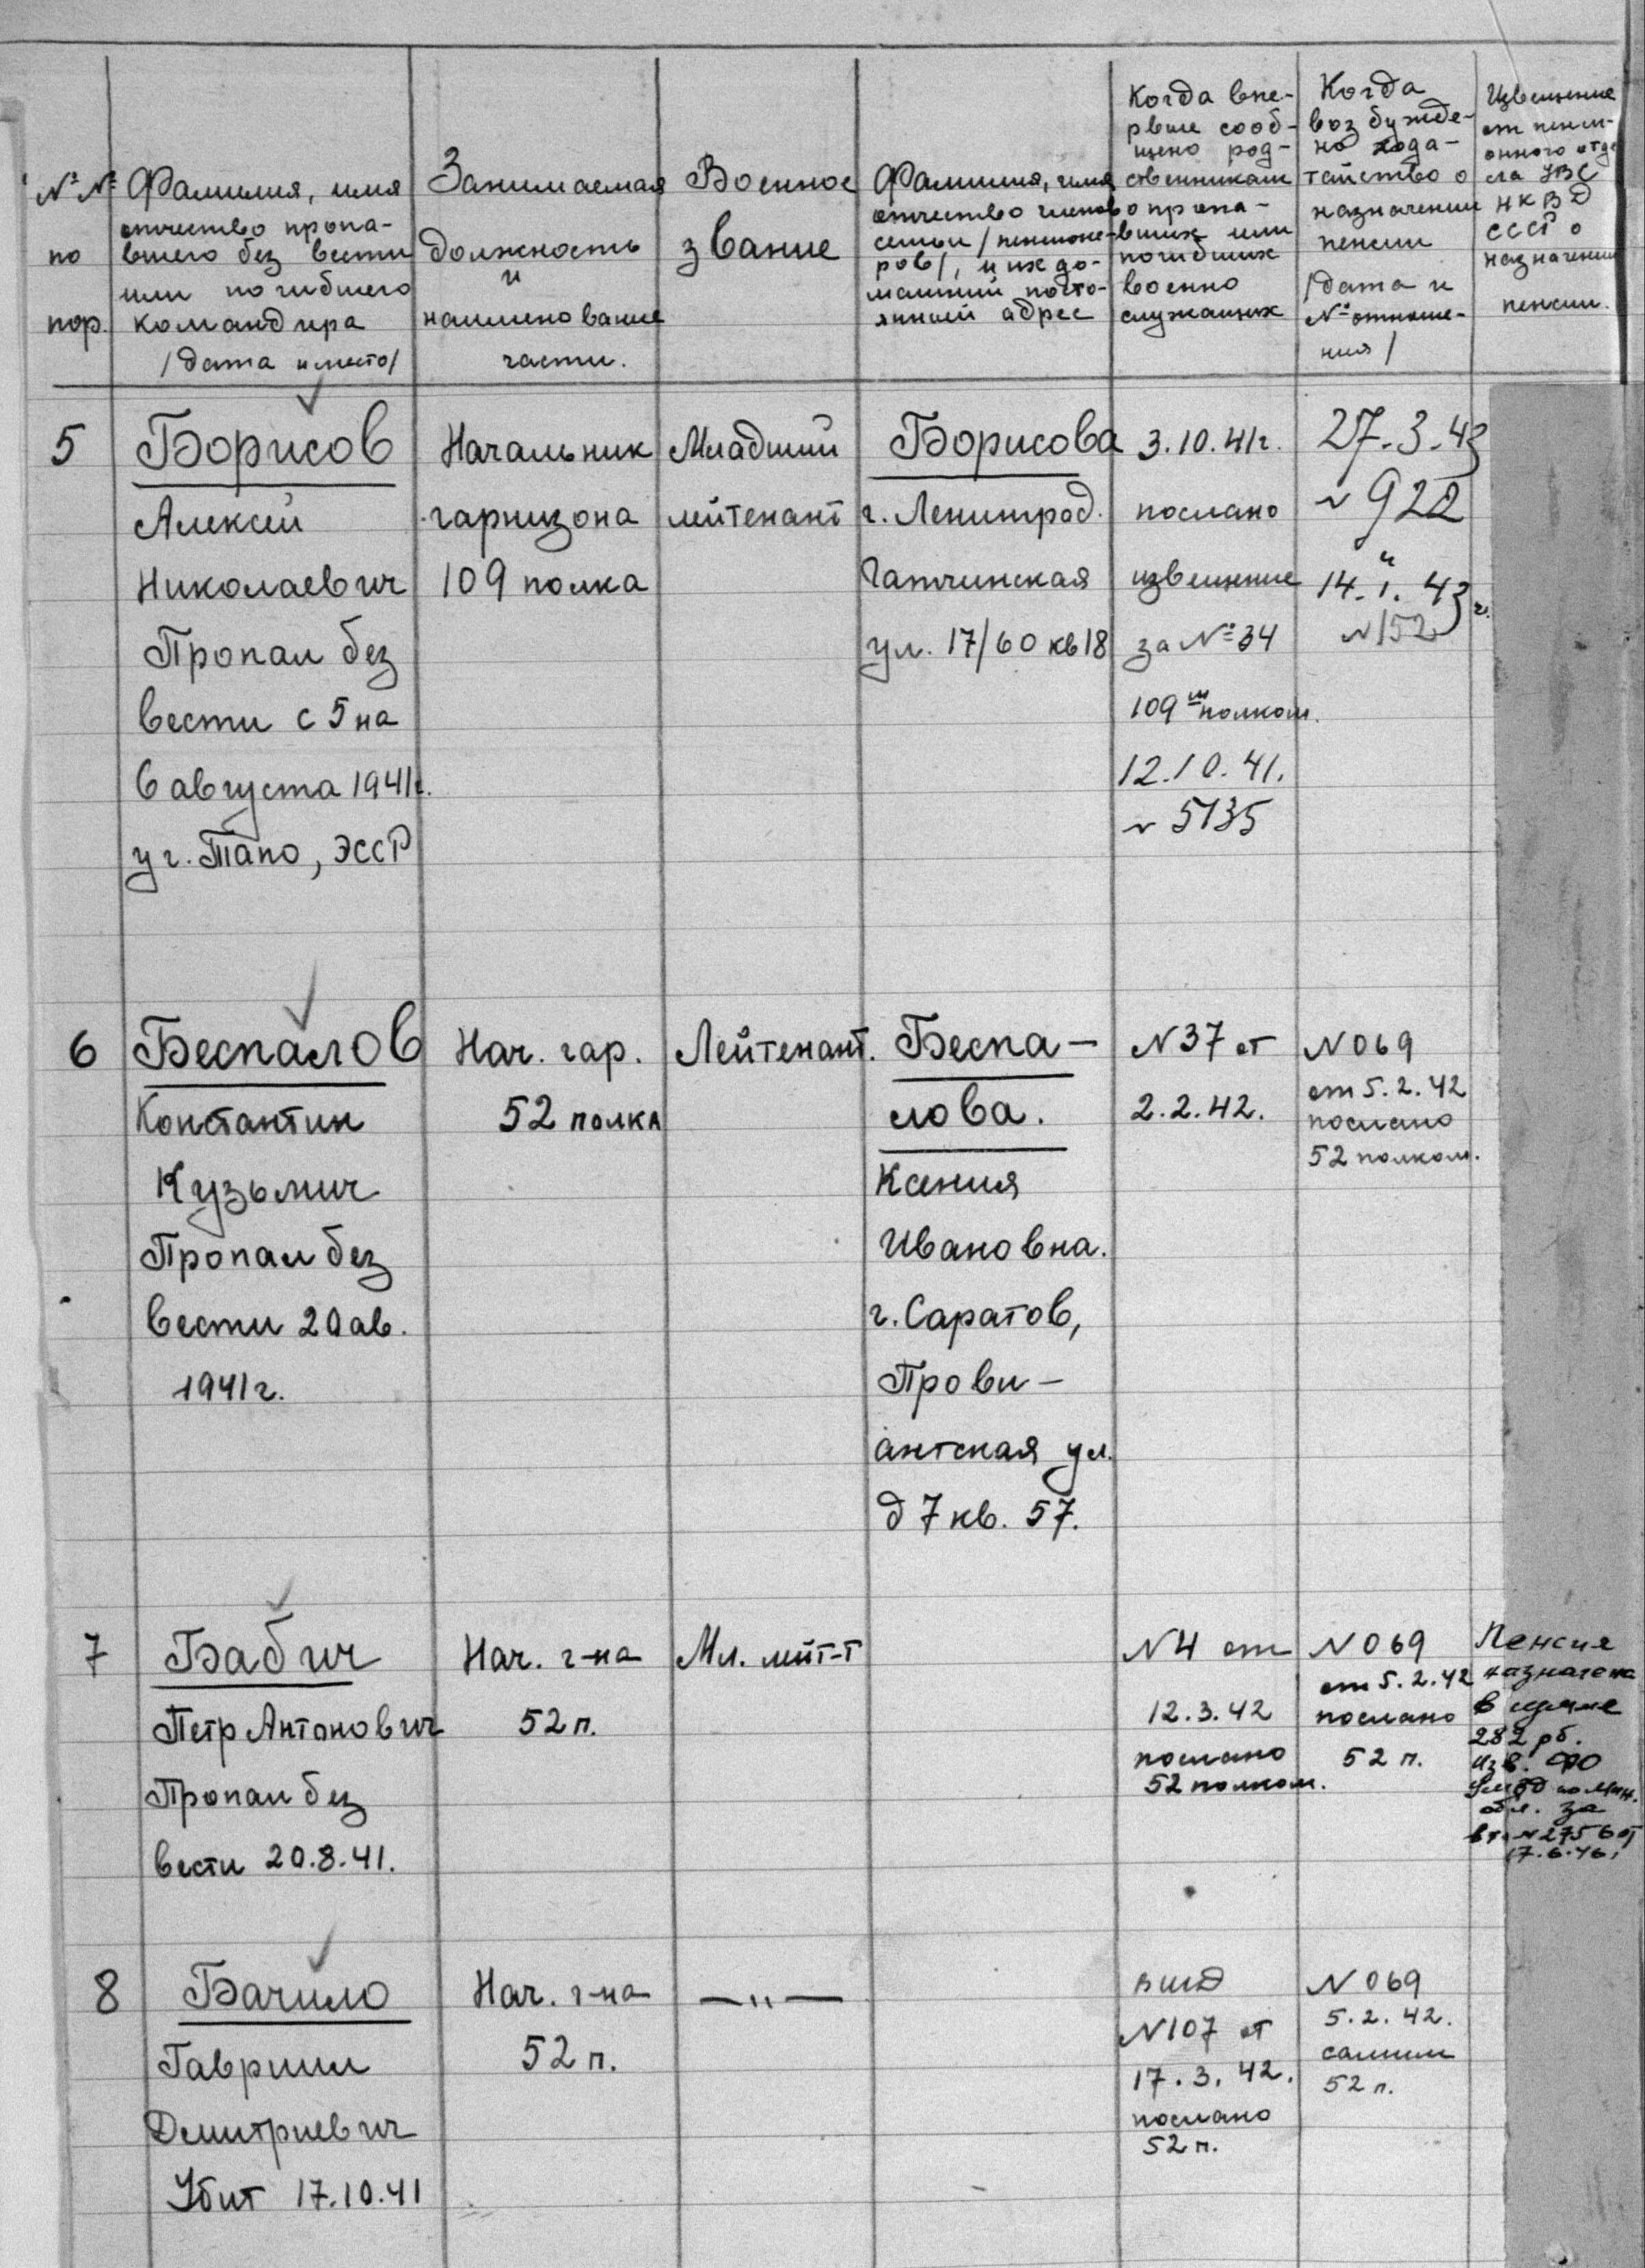 №№
по
пор.
Фамилия, имя
отчество пропа-
вшего без вести
или погибшего
командира
/дата и место/
Занимаемая
должность
и
наименование
части.
Военное
звание
Фамилия, имя
отчество членов
семьи /пенсионе-
ров/, и их до-
машний посто-
янный адрес
Когда впе-
рвые сооб-
щено род-
ственникам
о пропа-
вших или
погибших
военно
служащих
Когда
возбужде-
но хода-
тайство о
назначении
пенсии
/дата и
№ отноше-
ния/
Извещение
от пенси-
онного отде
ла УВС
НКВД
СССР о
назначении
пенсии.
5
Борисов
Алексей
Николаевич
Пропал без
вести с 5 на
6 августа 1941г.
у г. Тапо, ЭССР
Начальник
гарнизона
109 полка
Младший
лейтенант
Борисова
г. Ленинград.
Гатчинская
ул. 17/60 кв 18
3.10.41г.
послано
извещение
за №34
109м полком.
12.10.41.
N 5135
27.3.43
N 922
и
14.1.43г.
N152
6
Беспалов
Константин
Кузьмич
Пропал без
вести 20 ав.
1941г.
Нач. гар.
52 полка
Лейтенант.
Беспа-
лова.
Ксения
Ивановна.
г. Саратов,
Прови-
антская ул.
д 7 кв. 57.
N37 от
2.2.42.
N069
от 5.2.42
послано
52 полком.
7
Бабич
Петр Антонович
Пропал без
вести 20.8.41.
Нач. г-на
52 п.
Мл. лейт-т
N4 от
12.3.42
послано
52 полком.
N069
от 5.2.42
послано
52 п.
Пенсия
назначена
в сумме
282 рб.
Изв. ФО
по Мин.
обл. за
N 2756 от
17.6.46.
8
Бачило
Гавриил
Дмитриевич
Убит 17.10.41
Нач. г-на
52 п.
—"—
N107 от
17.3.42.
послано
52 п.
N069
5.2.42.
самим
52 п.